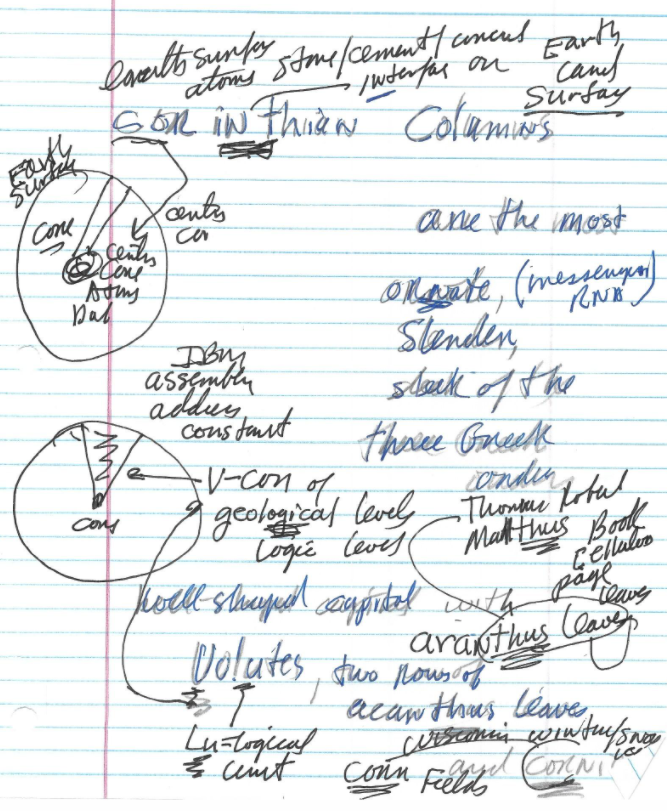 earth surfac
atoms
stone/cement/
interfac on
Earth
Cand
Surfac
Corinthian Columns
Earth
Surfac
Cone
center
Cor
center
Cone
Atoms
are the most
ornate, (messenger
RNA)
Slender,
sleek of the
three Greek
orders
IBM
assembly
address
constant
V-con of
geological levels
Logic levels
core
Thomas Robert
Malthus
Book
page
leaves
bell shaped capital with
acanthus leaves
Volutes, two rows of
acanthus leaves
Lu=logical
unit
Wisconsin winter/snow
ice
Corn Fields
and CORNI